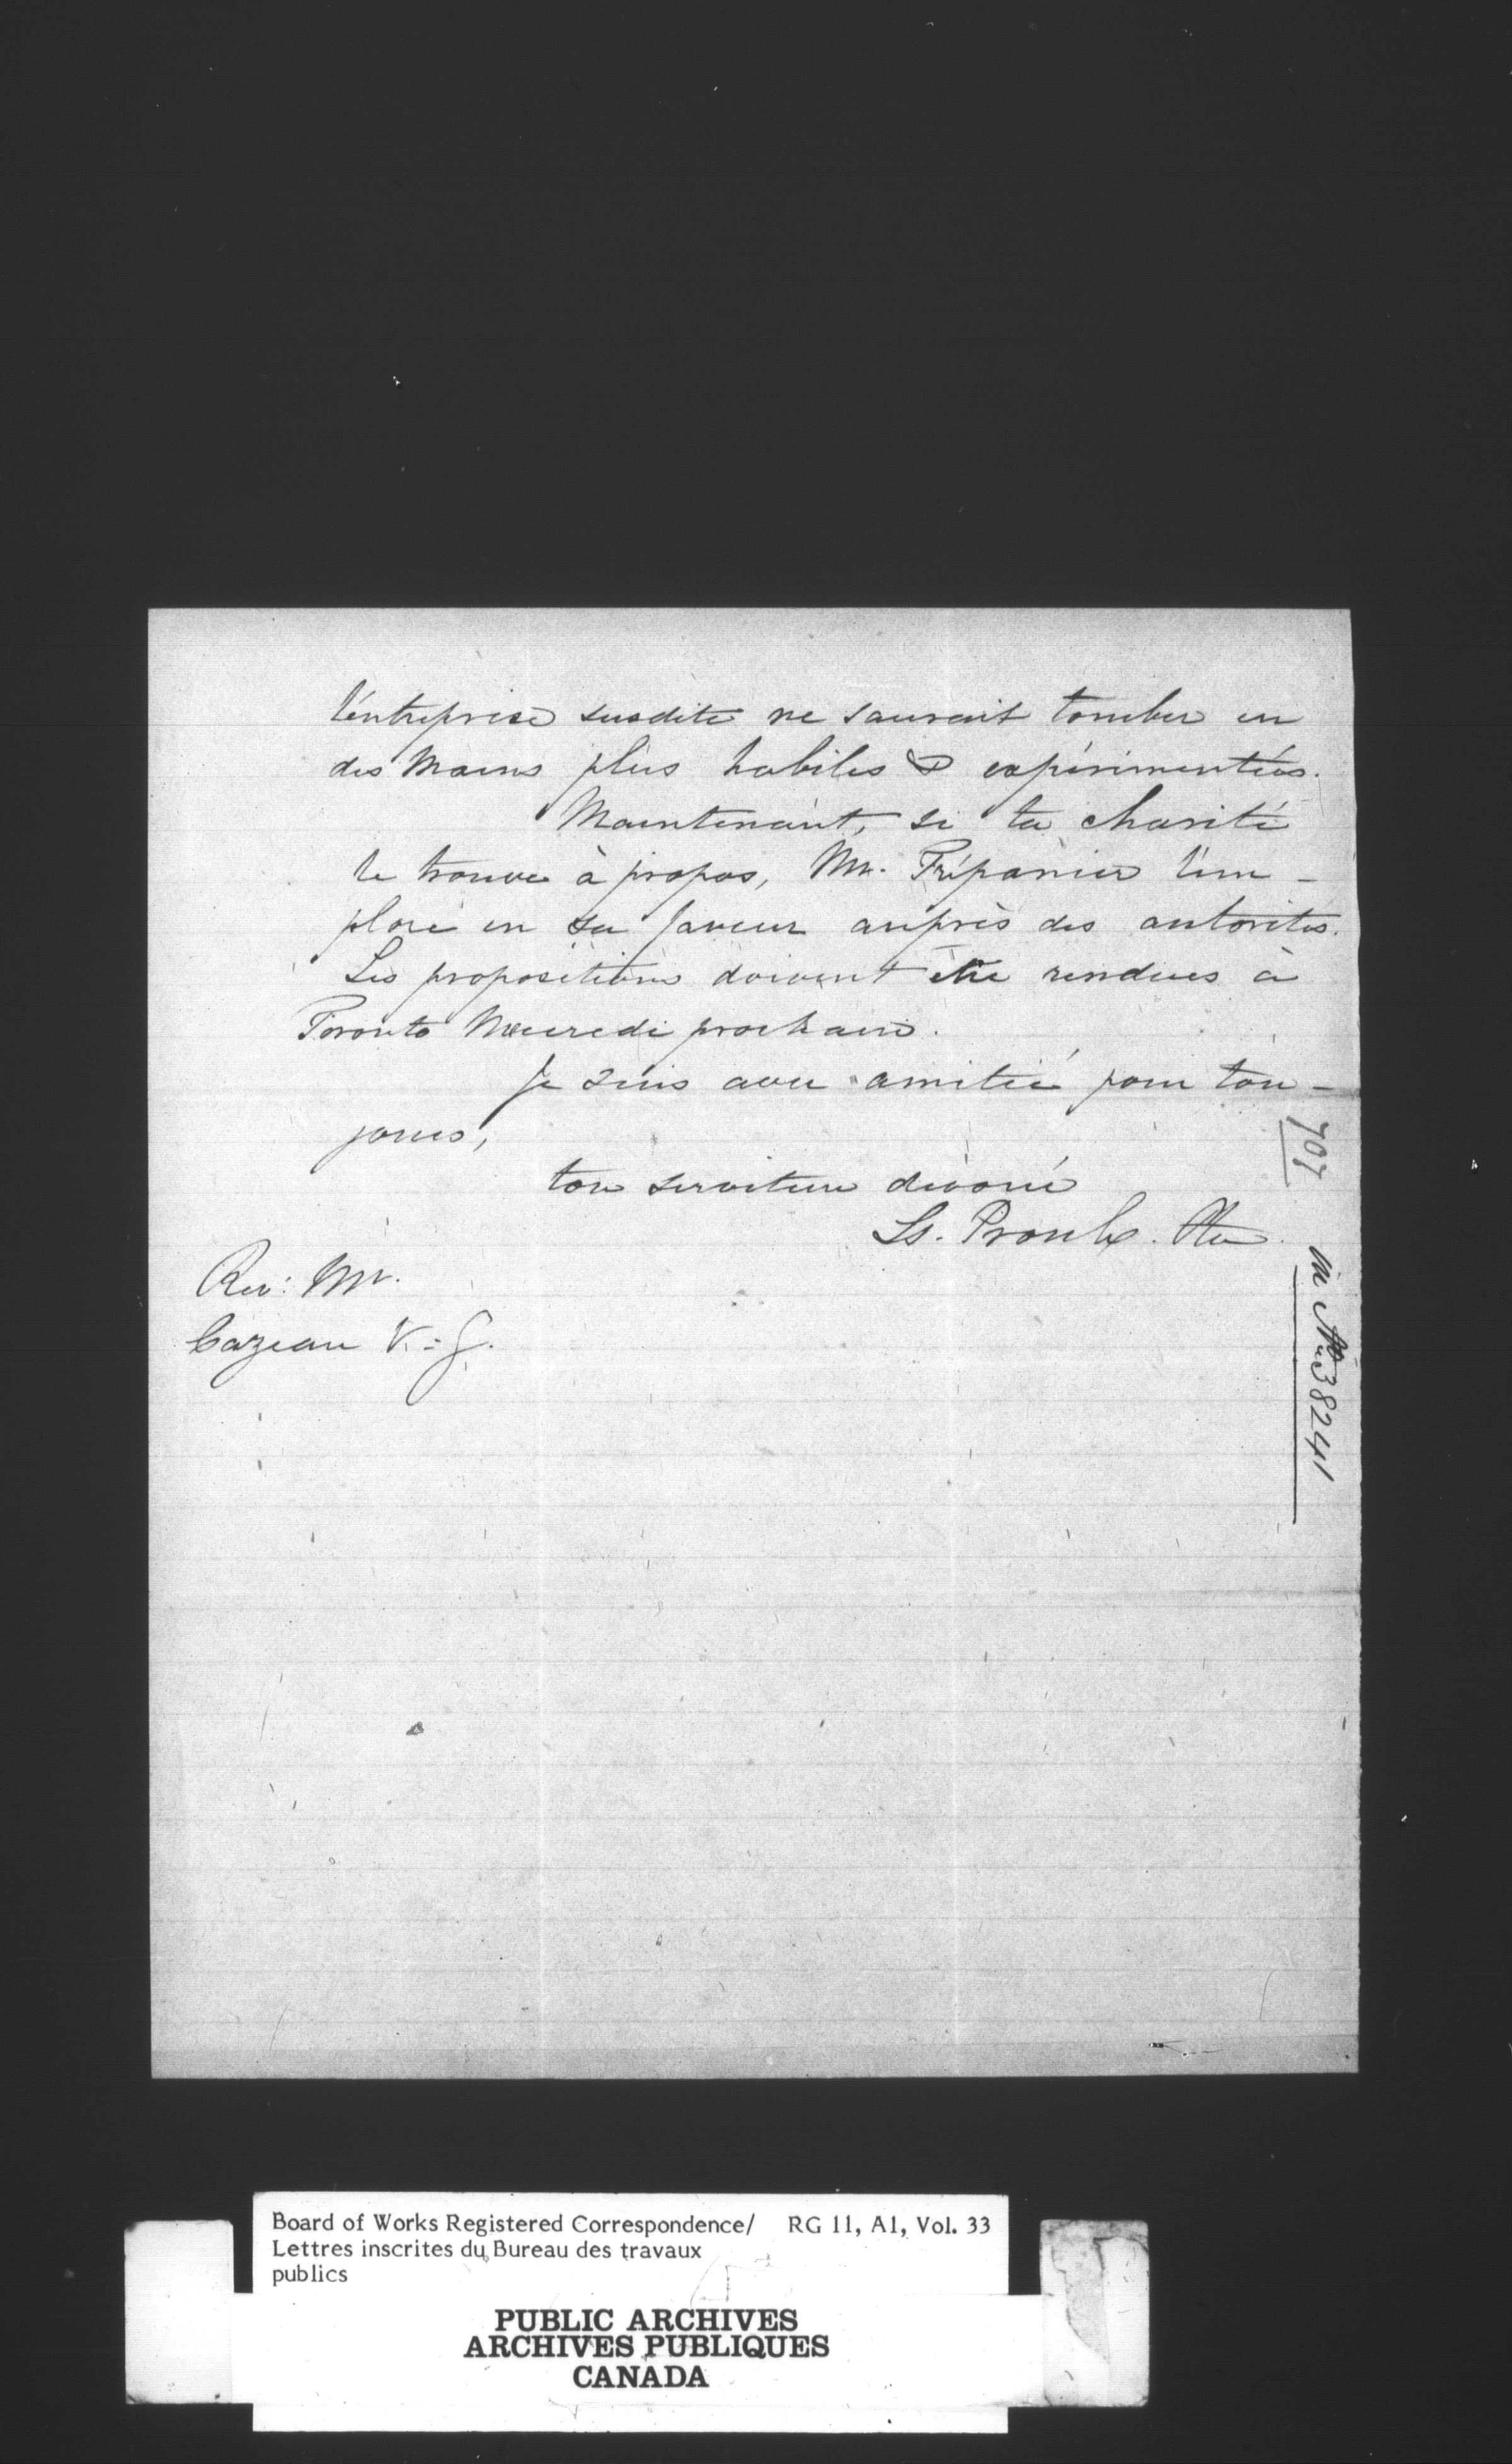 l'entreprise susdite ne saurait tomber en
des mains plus habiles & expérimentées.
Maintenant, si ta charité
le trouve à propos, Mr. Trépanier l'im-
plore en sa faveur auprès des autorités.
Les propositions doivent être rendues à
Toronto Mercredi prochain.
Je suis avec amitié pour tou-
jours,
ton serviteur dévoué
Ls. Proulx. Ptre.
Rev: Mr.
Cazeau V:G.
707
in No 38241
Board of Works Registered Correspondence/ RG 11, A1, Vol. 33
Lettres inscrites du Bureau des travaux
publics
PUBLIC ARCHIVES
ARCHIVES PUBLIQUES
CANADA